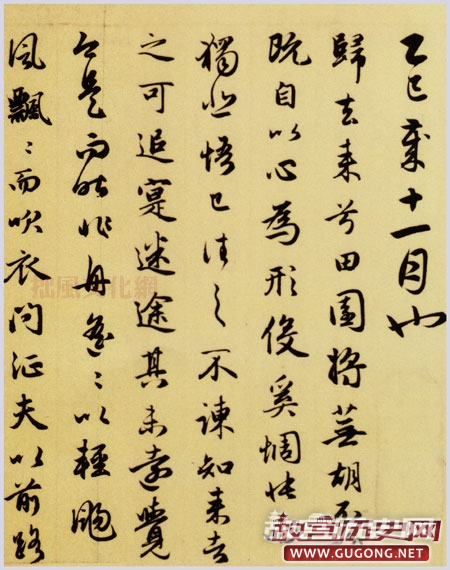 乙巳歲十一月也
歸去來兮田園將蕪胡不
既自以心為形役奚惆悵
獨悲悟已往之不諫知來者
之可追寔迷途其未遠覺
今是而昨非舟遙〻以輕颺
風飄〻而吹衣問征夫以前路
拙風文化網
故宫历史网
WWW.GUGONG.NET